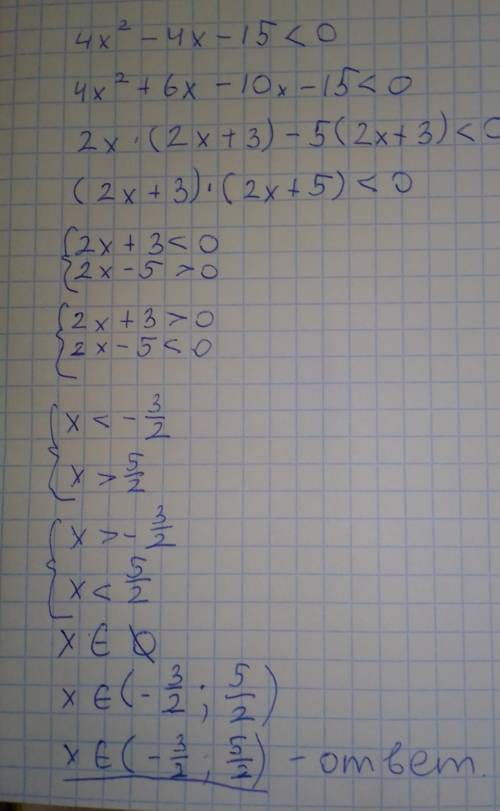 4x² - 4x - 15 < 0
4x² + 6x - 10x - 15 < 0
2x · (2x + 3) - 5(2x + 3) < 0
(2x + 3) · (2x + 5) < 0
{ 2x + 3 < 0
2x - 5 > 0
{ 2x + 3 > 0
2x - 5 < 0
{ x < - 3/2
x > 5/2
{ x > - 3/2
x < 5/2
x ∈ ∅
x ∈ (- 3/2 ; 5/2)
x ∈ (- 3/2 ; 5/2) - ответ.